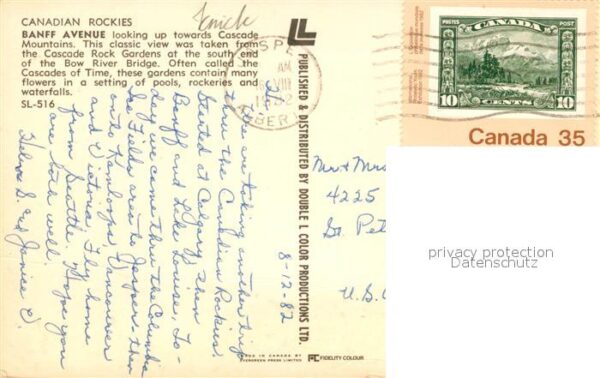 CANADIAN ROCKIES
BANFF AVENUE looking up towards Cascade
Mountains. This classic view was taken from
the Cascade Rock Gardens at the south end
of the Bow River Bridge. Often called the
Cascades of Time, these gardens contain many
flowers in a setting of pools, rockeries and
waterfalls.
SL-516
AM
VIII
ALBERT
PUBLISHED & DISTRIBUTED BY DOUBLE L COLOR PRODUCTIONS LTD.
MADE IN CANADA BY
EVERGREEN PRESS LIMITED
FIDELITY COLOUR
8-12-82
Hi,
We are taking another trip
thru the Canadian Rockies.
Started at Calgary then
Banff and Lake Louise. To-
day we came thru the Columbia
Ice Fields area to Jasper, then
onto Kamloops, Vancouver
and Victoria. Fly home
from Seattle. Hope you
are both well.
Janice
Mr & Mrs
4225
St. Pet
U.S.
POSTES
POSTAGE
CANADA
10
CENTS
10
Canada 35
privacy protection
Datenschutz